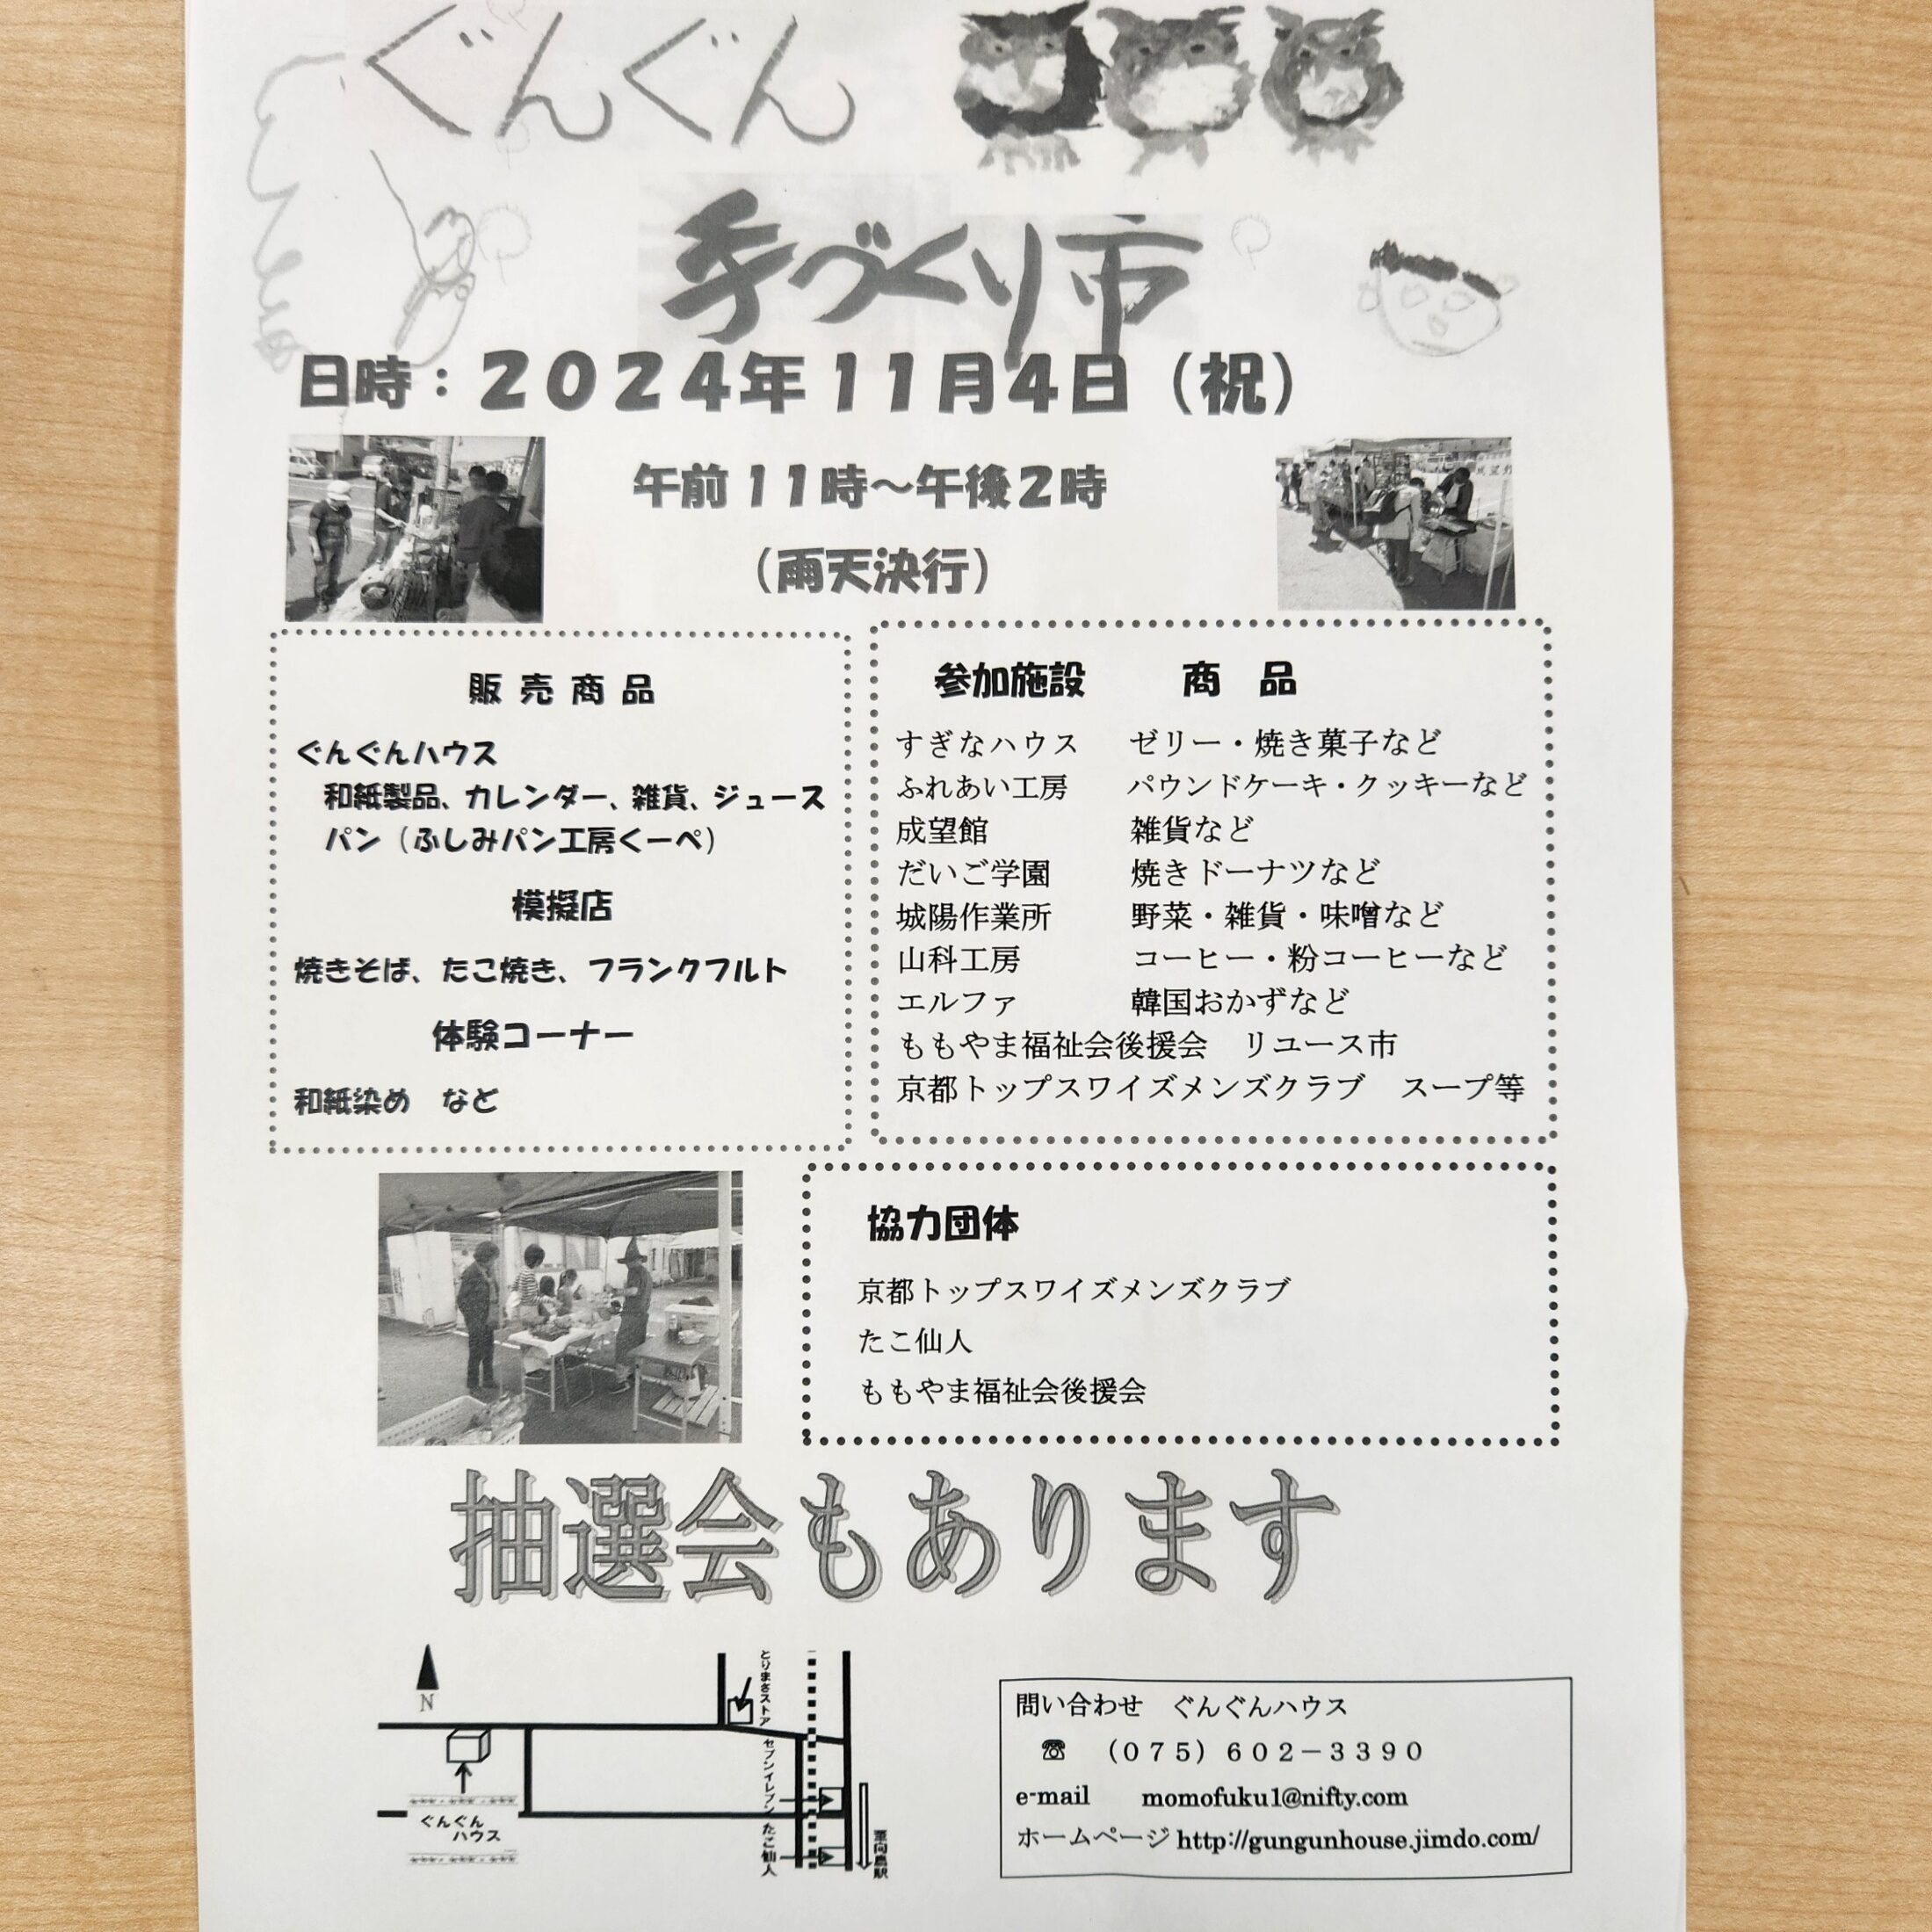 ぐんぐん
手づくり市
日時：２０２４年１１月４日（祝）
午前１１時～午後２時
（雨天決行）
販売商品
ぐんぐんハウス
和紙製品、カレンダー、雑貨、ジュース
パン（ふしみパン工房くーぺ）
模擬店
焼きそば、たこ焼き、フランクフルト
体験コーナー
和紙染め　など
参加施設　商　品
すぎなハウス　ゼリー・焼き菓子など
ふれあい工房　パウンドケーキ・クッキーなど
成望館　雑貨など
だいご学園　焼きドーナツなど
城陽作業所　野菜・雑貨・味噌など
山科工房　コーヒー・粉コーヒーなど
エルファ　韓国おかずなど
ももやま福祉会後援会　リユース市
京都トップスワイズメンズクラブ　スープ等
協力団体
京都トップスワイズメンズクラブ
たこ仙人
ももやま福祉会後援会
抽選会もあります
N
とりまさストア
セブンイレブン
たこ仙人
ぐんぐん
ハウス
向島駅
問い合わせ　ぐんぐんハウス
☎　（０７５）６０２－３３９０
e-mail　momofuku1@nifty.com
ホームページ http://gungunhouse.jimdo.com/